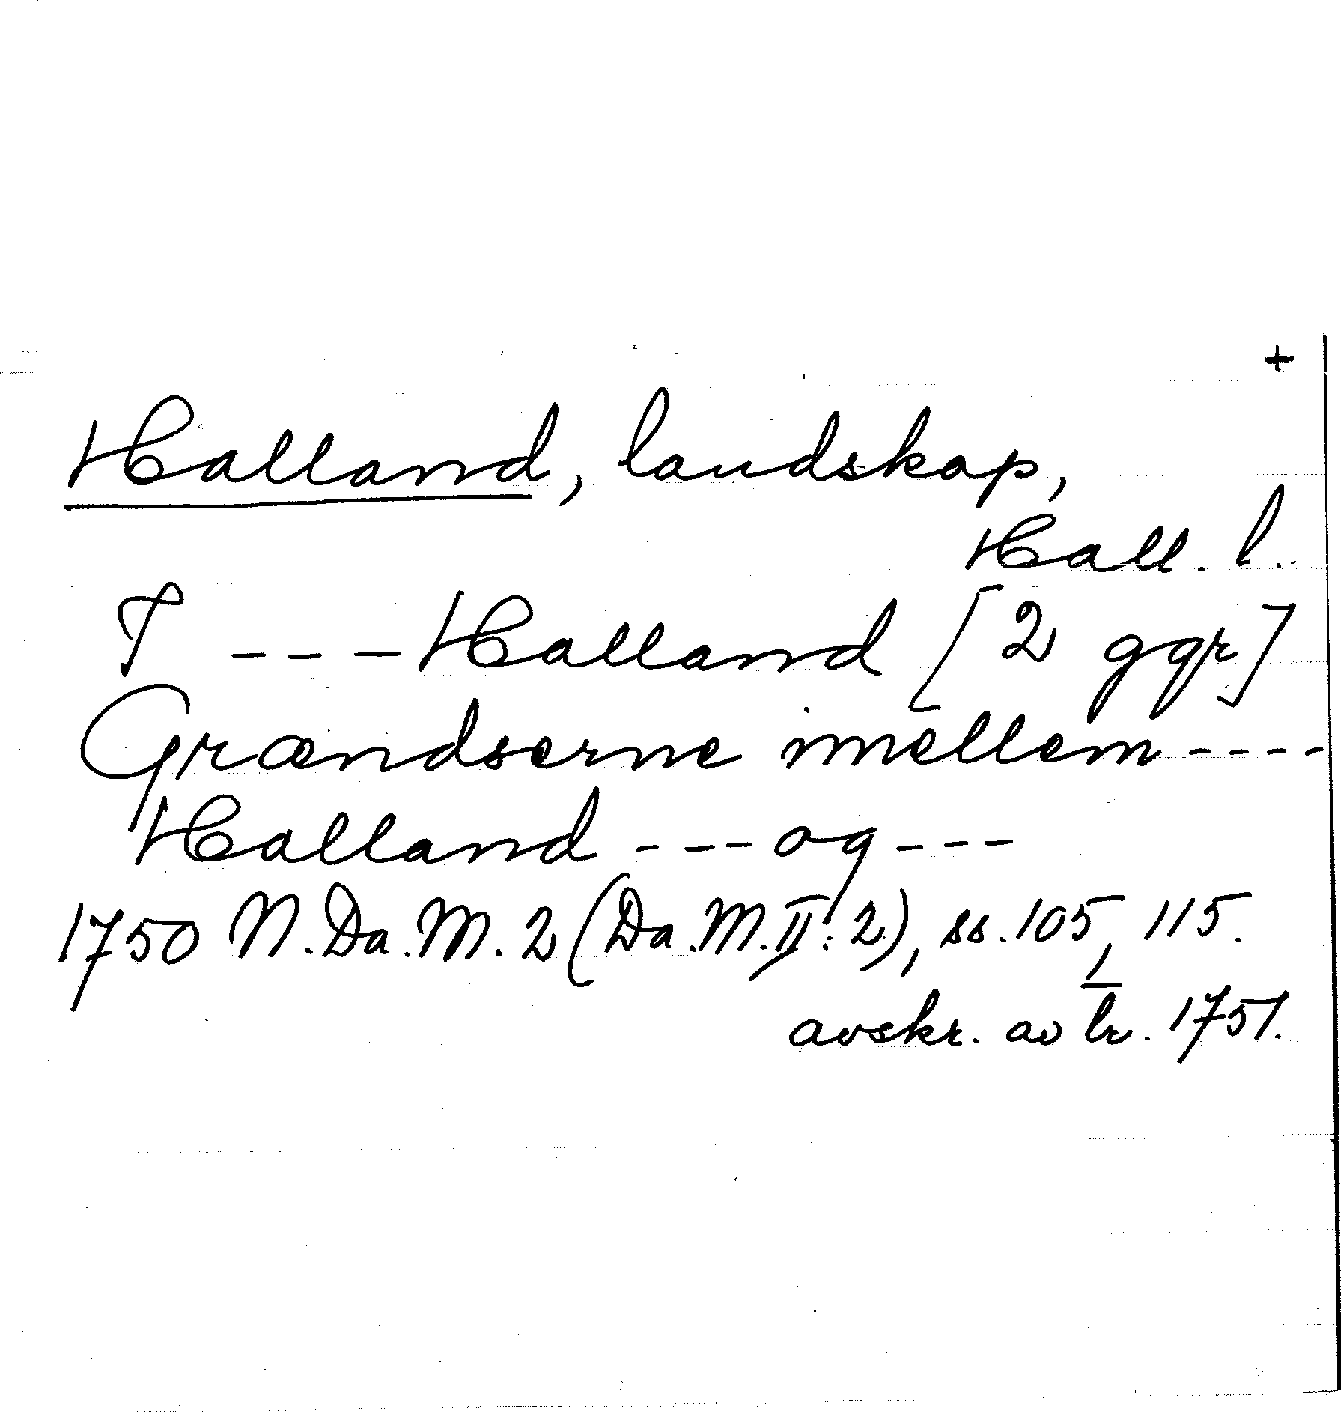 +
Halland, landskap,
Hall. l.
I ---Halland [2 ggr]
Grændserne imellem----
Halland ---og---
1750 N.Da.M. 2 (Da.M.II:2), ss. 105, 115.
avskr. av br. 1751.